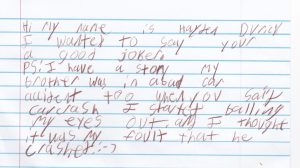 Hi my name is Hayden
I wanted to say your
a good joker.
PS: I have a story my
brother was in a bad car
accident too when ov say
carcrash I started balling
my eyes out and I thought
it was my foult that he
crashed :-)